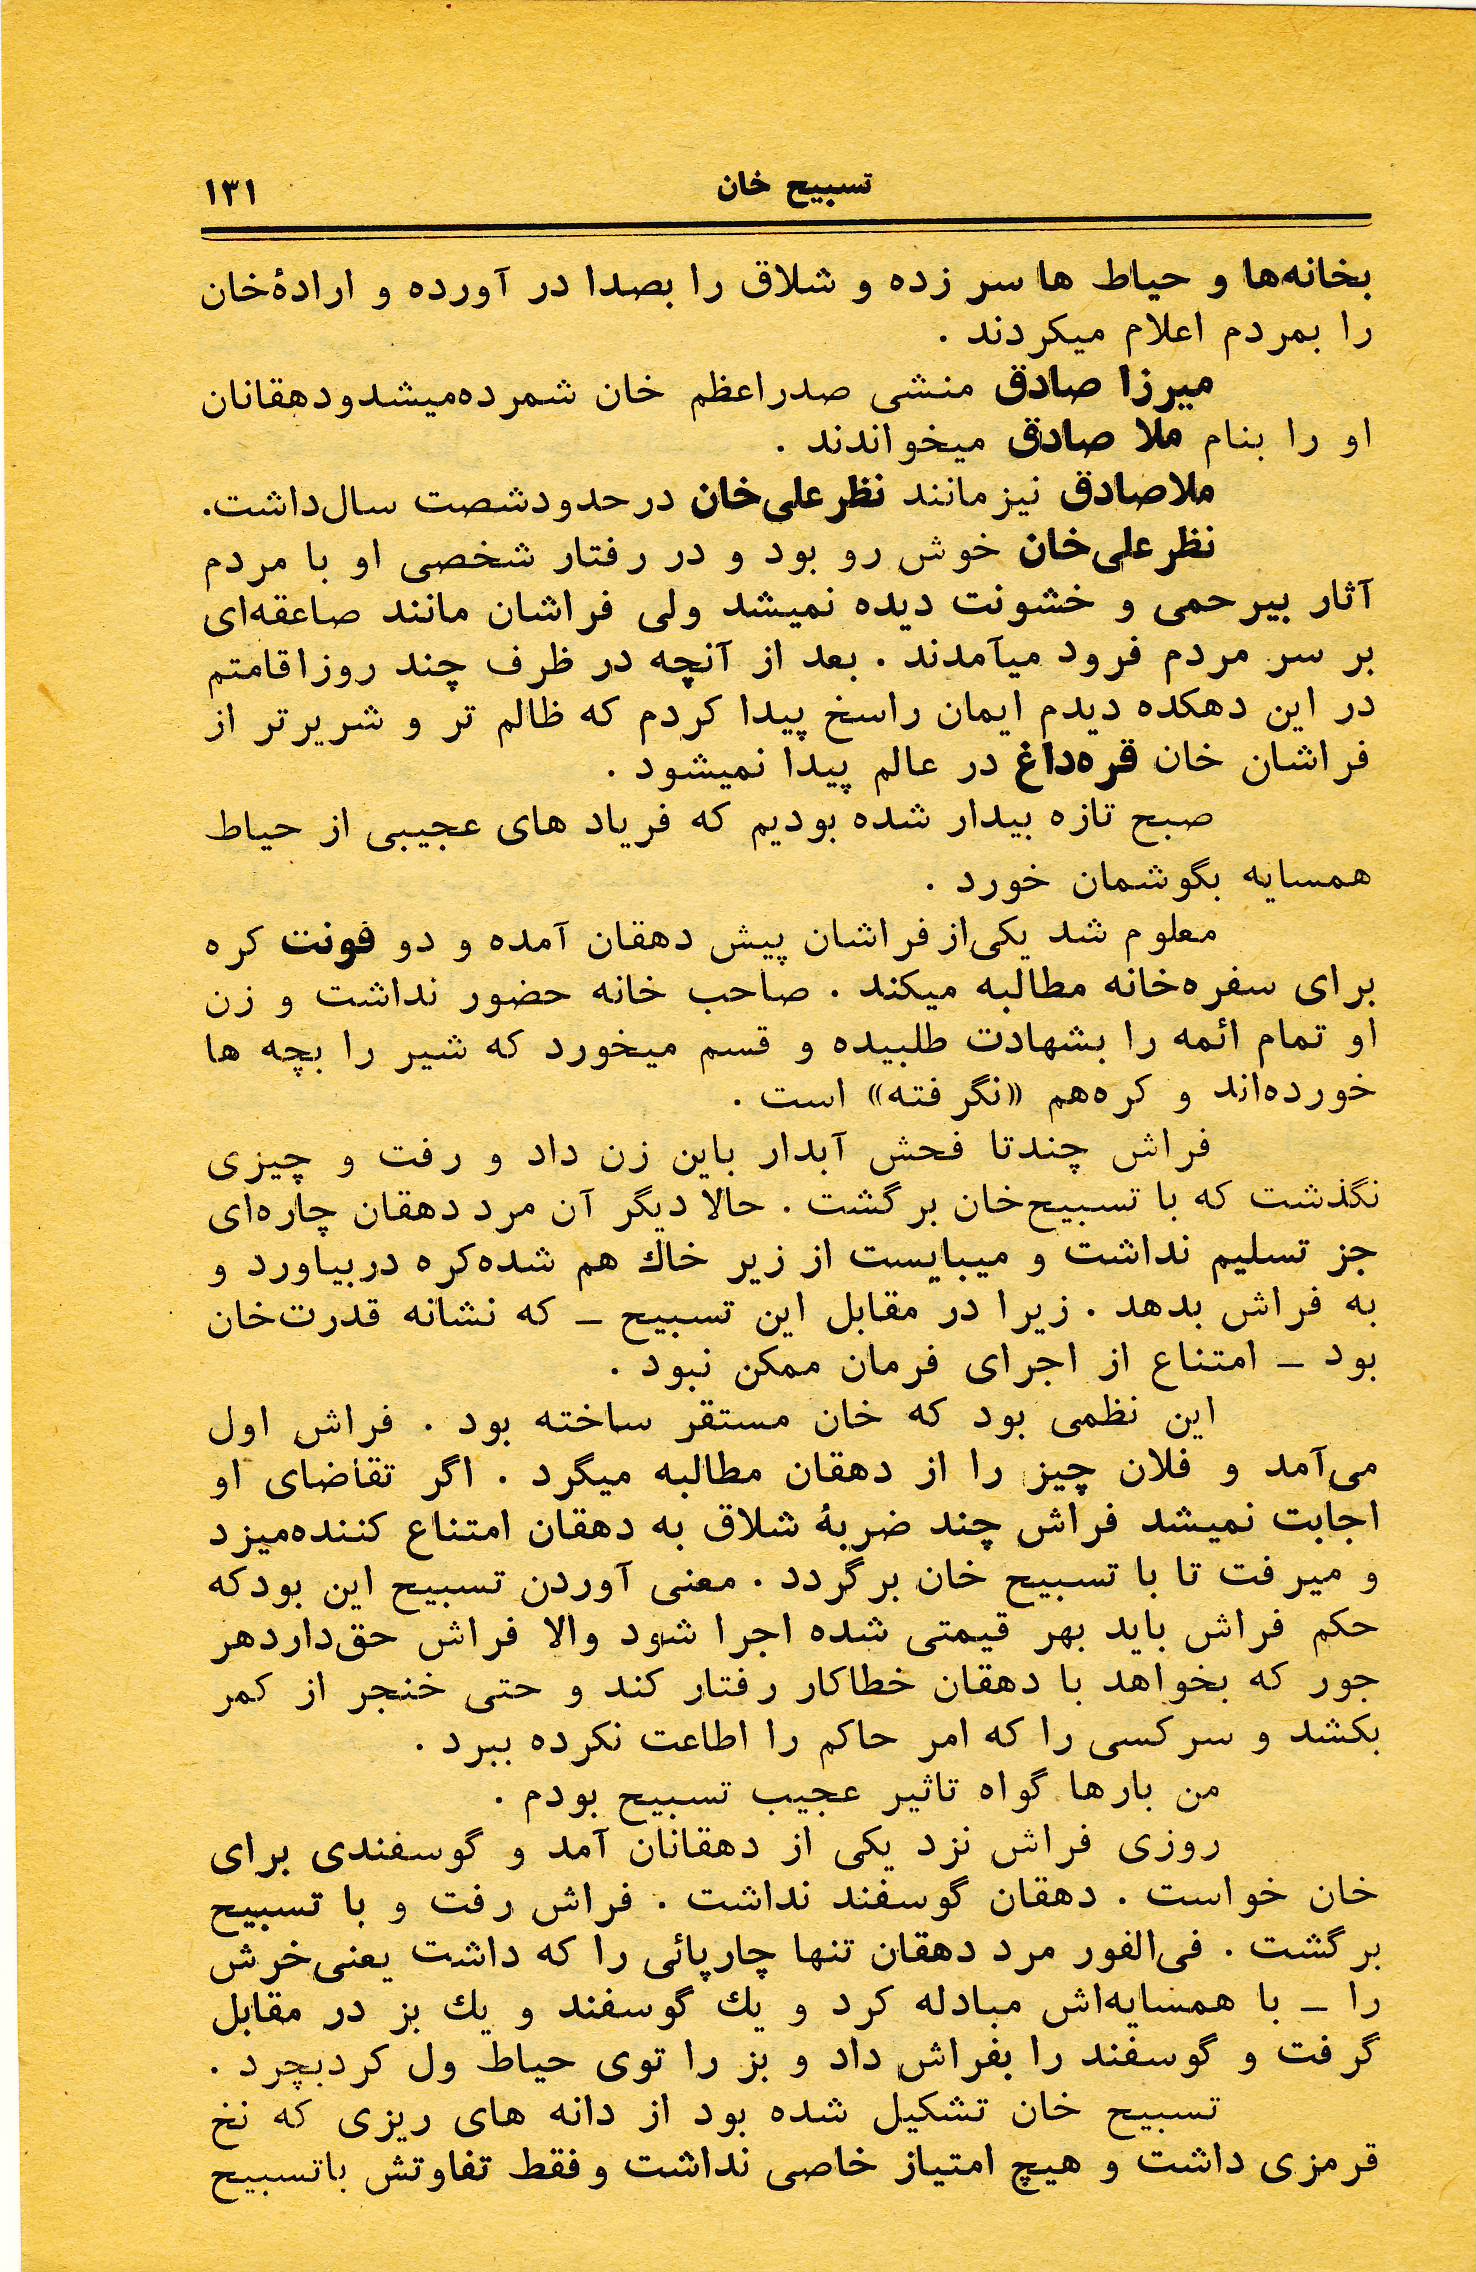 تسبیح خان
۱۳۱
بخانه‌ها و حیاط ها سر زده و شلاق را بصدا در آورده و ارادهٔ خان
را بمردم اعلام میکردند .
میرزا صادق منشی صدراعظم خان شمرده‌میشدودهقانان
او را بنام ملا صادق میخواندند .
ملاصادق نیزمانند نظرعلی‌خان درحدودشصت سال‌داشت.
نظرعلی‌خان خوش رو بود و در رفتار شخصی او با مردم
آثار بیرحمی و خشونت دیده نمیشد ولی فراشان مانند صاعقه‌ای
بر سر مردم فرود میآمدند . بعد از آنچه در ظرف چند روزاقامتم
در این دهکده دیدم ایمان راسخ پیدا کردم که ظالم تر و شریرتر از
فراشان خان قره‌داغ در عالم پیدا نمیشود .
صبح تازه بیدار شده بودیم که فریاد های عجیبی از حیاط
همسایه بگوشمان خورد .
معلوم شد یکی‌ازفراشان پیش دهقان آمده و دو فونت کره
برای سفره‌خانه مطالبه میکند . صاحب خانه حضور نداشت و زن
او تمام ائمه را بشهادت طلبیده و قسم میخورد که شیر را بچه ها
خورده‌اند و کره‌هم «نگرفته» است .
فراش چندتا فحش آبدار باین زن داد و رفت و چیزی
نگذشت که با تسبیح‌خان برگشت . حالا دیگر آن مرد دهقان چاره‌ای
جز تسلیم نداشت و میبایست از زیر خاك هم شده‌کره دربیاورد و
به فراش بدهد . زیرا در مقابل این تسبیح – که نشانه قدرت‌خان
بود – امتناع از اجرای فرمان ممکن نبود .
این نظمی بود که خان مستقر ساخته بود . فراش اول
می‌آمد و فلان چیز را از دهقان مطالبه میگرد . اگر تقاضای او
اجابت نمیشد فراش چند ضربهٔ شلاق به دهقان امتناع کننده‌میزد
و میرفت تا با تسبیح خان برگردد . معنی آوردن تسبیح این بودکه
حکم فراش باید بهر قیمتی شده اجرا شود والا فراش حق‌داردهر
جور که بخواهد با دهقان خطاکار رفتار کند و حتی خنجر از کمر
بکشد و سرکسی را که امر حاکم را اطاعت نکرده ببرد .
من بارها گواه تاثیر عجیب تسبیح بودم .
روزی فراش نزد یکی از دهقانان آمد و گوسفندی برای
خان خواست . دهقان گوسفند نداشت . فراش رفت و با تسبیح
برگشت . فی‌الفور مرد دهقان تنها چارپائی را که داشت یعنی‌خرش
را – با همسایه‌اش مبادله کرد و یك گوسفند و یك بز در مقابل
گرفت و گوسفند را بفراش داد و بز را توی حیاط ول کردبچرد .
تسبیح خان تشکیل شده بود از دانه های ریزی که نخ
قرمزی داشت و هیچ امتیاز خاصی نداشت و فقط تفاوتش باتسبیح